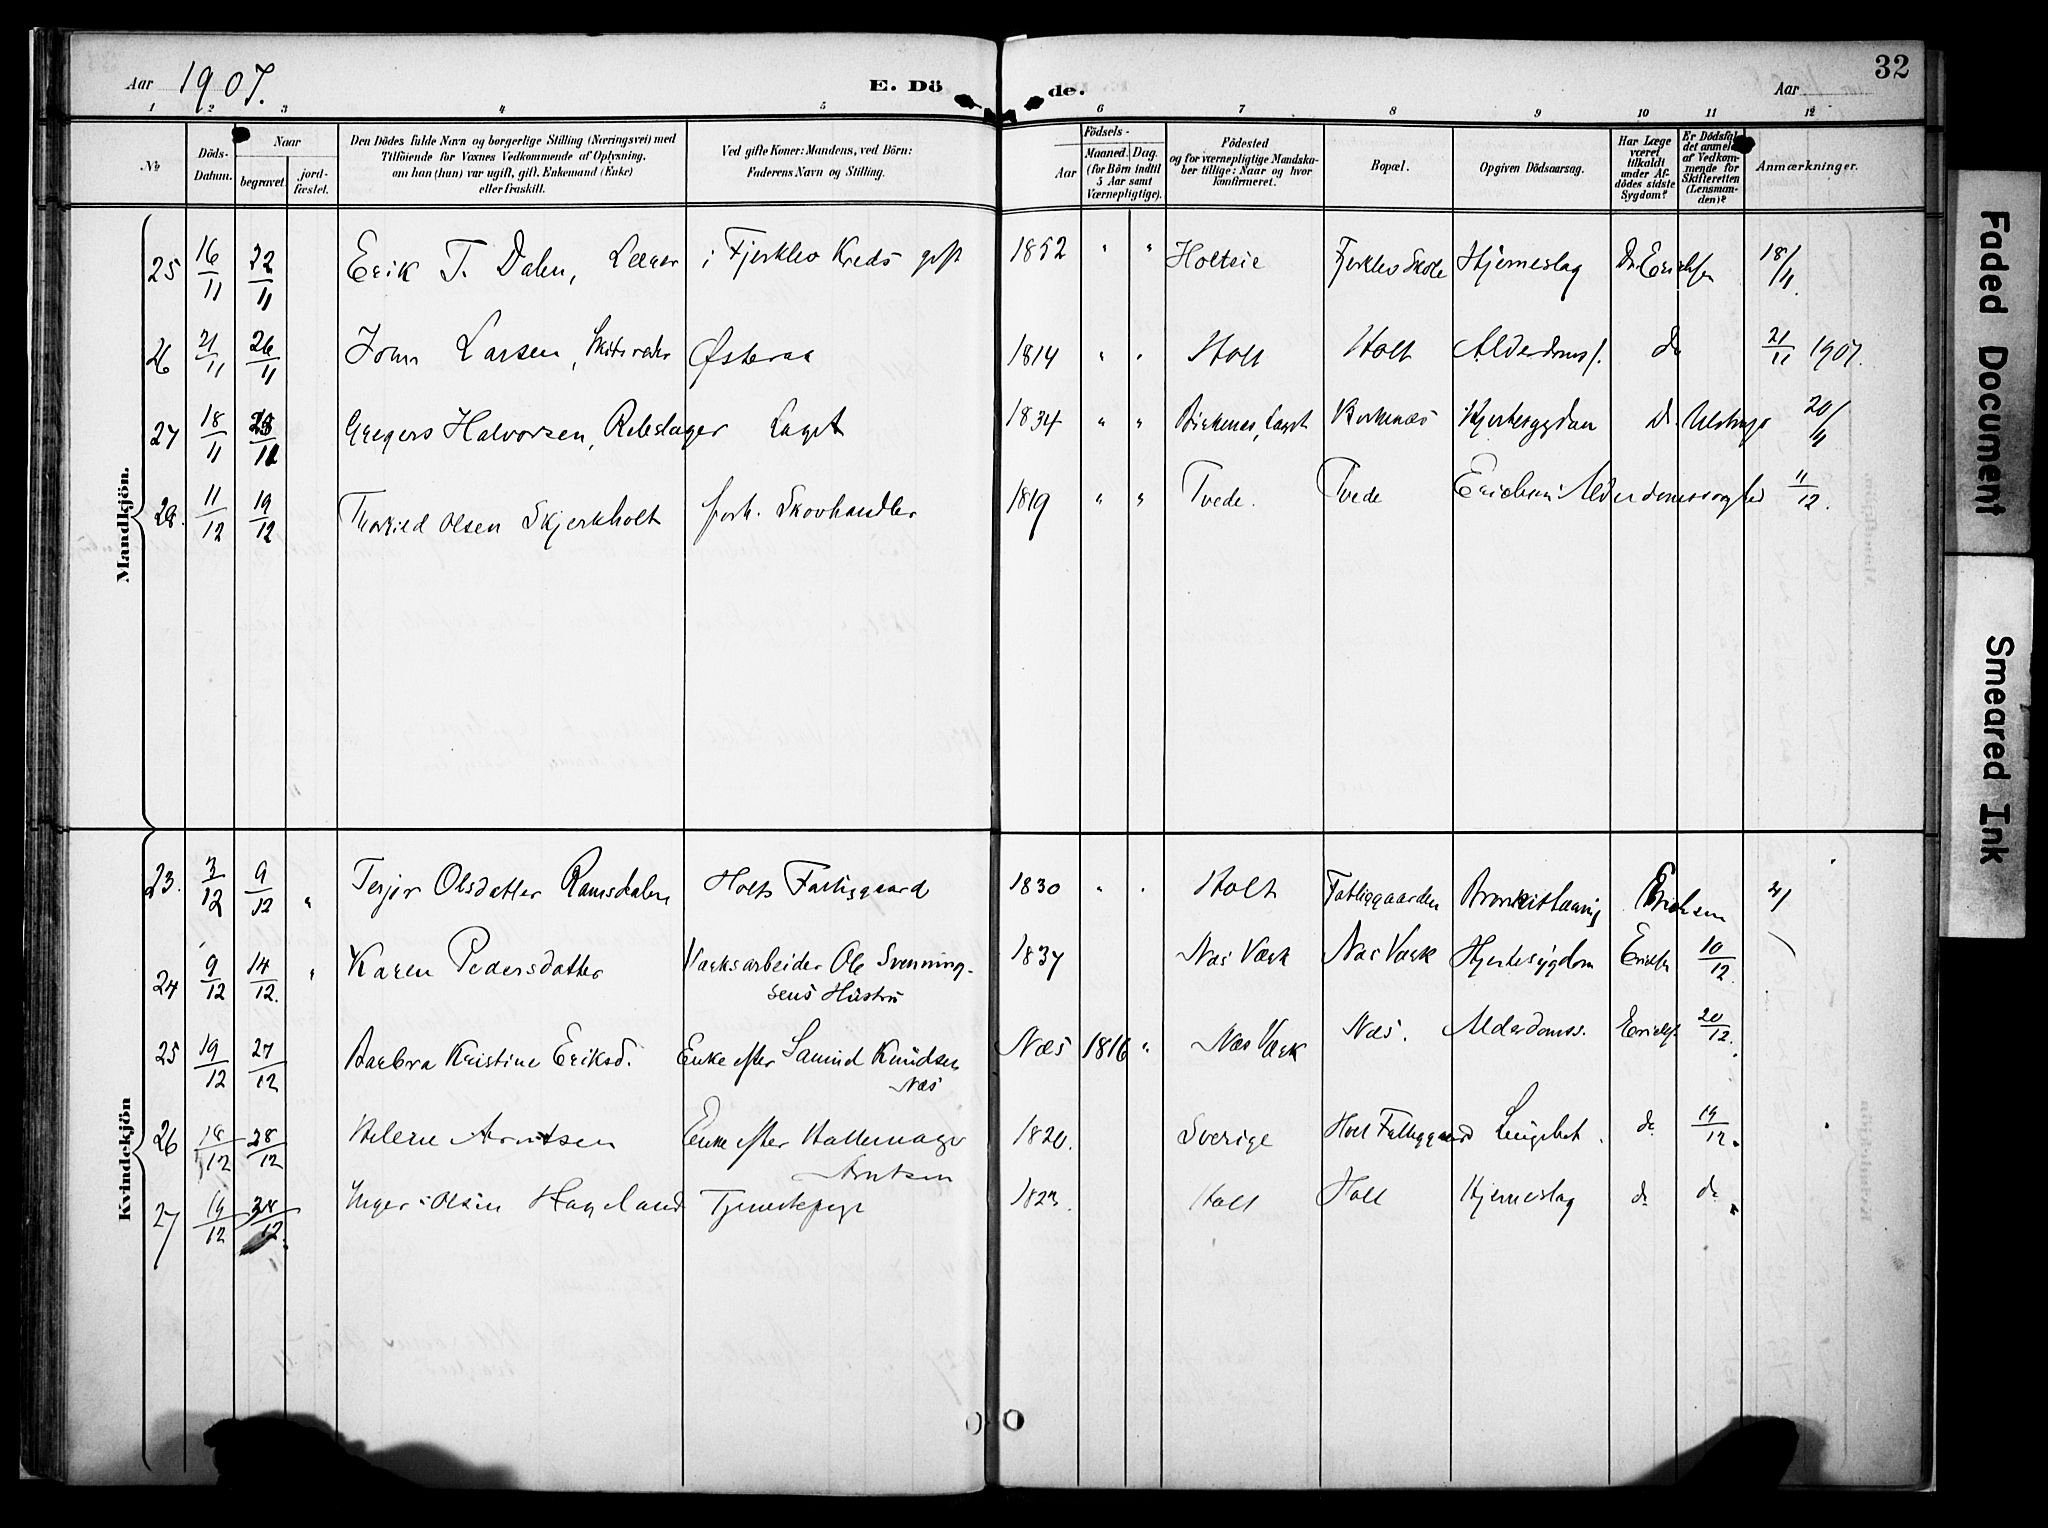 32
Aar 1907.
E. Dö
de.
Aar
1 2 3 4 5 6 7 8 9 10 11 12
№
Döds-Datum.
Naar
begravet.
jord-fæstet.
Den Dödes fulde Navn og borgerlige Stilling (Næringsvei) med
Tilföiende for Voxnes Vedkommende af Oplysning,
om han (hun) var ugift, gift, Enkemand (Enke)
eller fraskilt.
Ved gifte Koner: Mandens, ved Börn:
Faderens Navn og Stilling.
Födsels-
Aar
Maaned. Dag.
(for Börn indtil
5 Aar samt
Værnepligtige).
Födested
og for værnepligtige Mandska-
ber tillige: Naar og hvor
konfirmeret.
Bopæl.
Opgiven Dödsaarsag.
Har Læge
været
tilkaldt
under Af-
dödes sidste
Sygdom?
Er Dödsfal-
det anmeldt
af Vedkom-
mende for
Skifteretten
(Lensman-
den)?
Anmærkninger.
Mandkjön.
25 16/11 22/11 Erik T. Dalen, Lærer i Fjerklev Kreds gift 1852 " " Holteie Fjerklev Skole Hjerneslag Dr. Erichsen 18/11.
26 21/11 26/11 John Larsen, Østeraa 1814 " " Holt Holt Alderdoms. do 21/11 1907.
27 18/11 Gregers Halvorsen, Rebslager Laget 1834 " " Birkenes, Laget Birkenæs Hjertesygdom D. Ulstrup 20/11
28. 11/12 19/12 Olsen Skjerkholt forh. Skovhandler 1819 " " Tvede. Tvede Erichsen Alderdomssvaghed 11/12.
Kvindekjön
23. 3/12 9/12 " Terjer Olsdatter Ramsdalen Holts Fattiggaard 1830 " " Holt Fattiggaarden Erichsen
24 9/12 14/12. " Karen Pedersdatter Værksarbeider Ole Svenning-
sens Hustru 1837 Næs Værk Næs Værk Hjertesygdom Erichs 10/12.
25 19/12 27/12 Barbra Kristine Eriksd. Enke efter Samuel Knudsen
Næs Næs 1816 " Næs Værk Næs. Alderdomss. Erichs. 20/12.
26 18/12 28/12 Helene Arntsen Enke efter Hattemager
Arntsen 1820. Sverige Holt Fattiggaard Lungebet. do 19/12.
27 19/12 28/12. Inger Olsen Hageland Tjenestepige 1823. Holt Holt Hjerneslag do do.
Faded Document
Smeared Ink